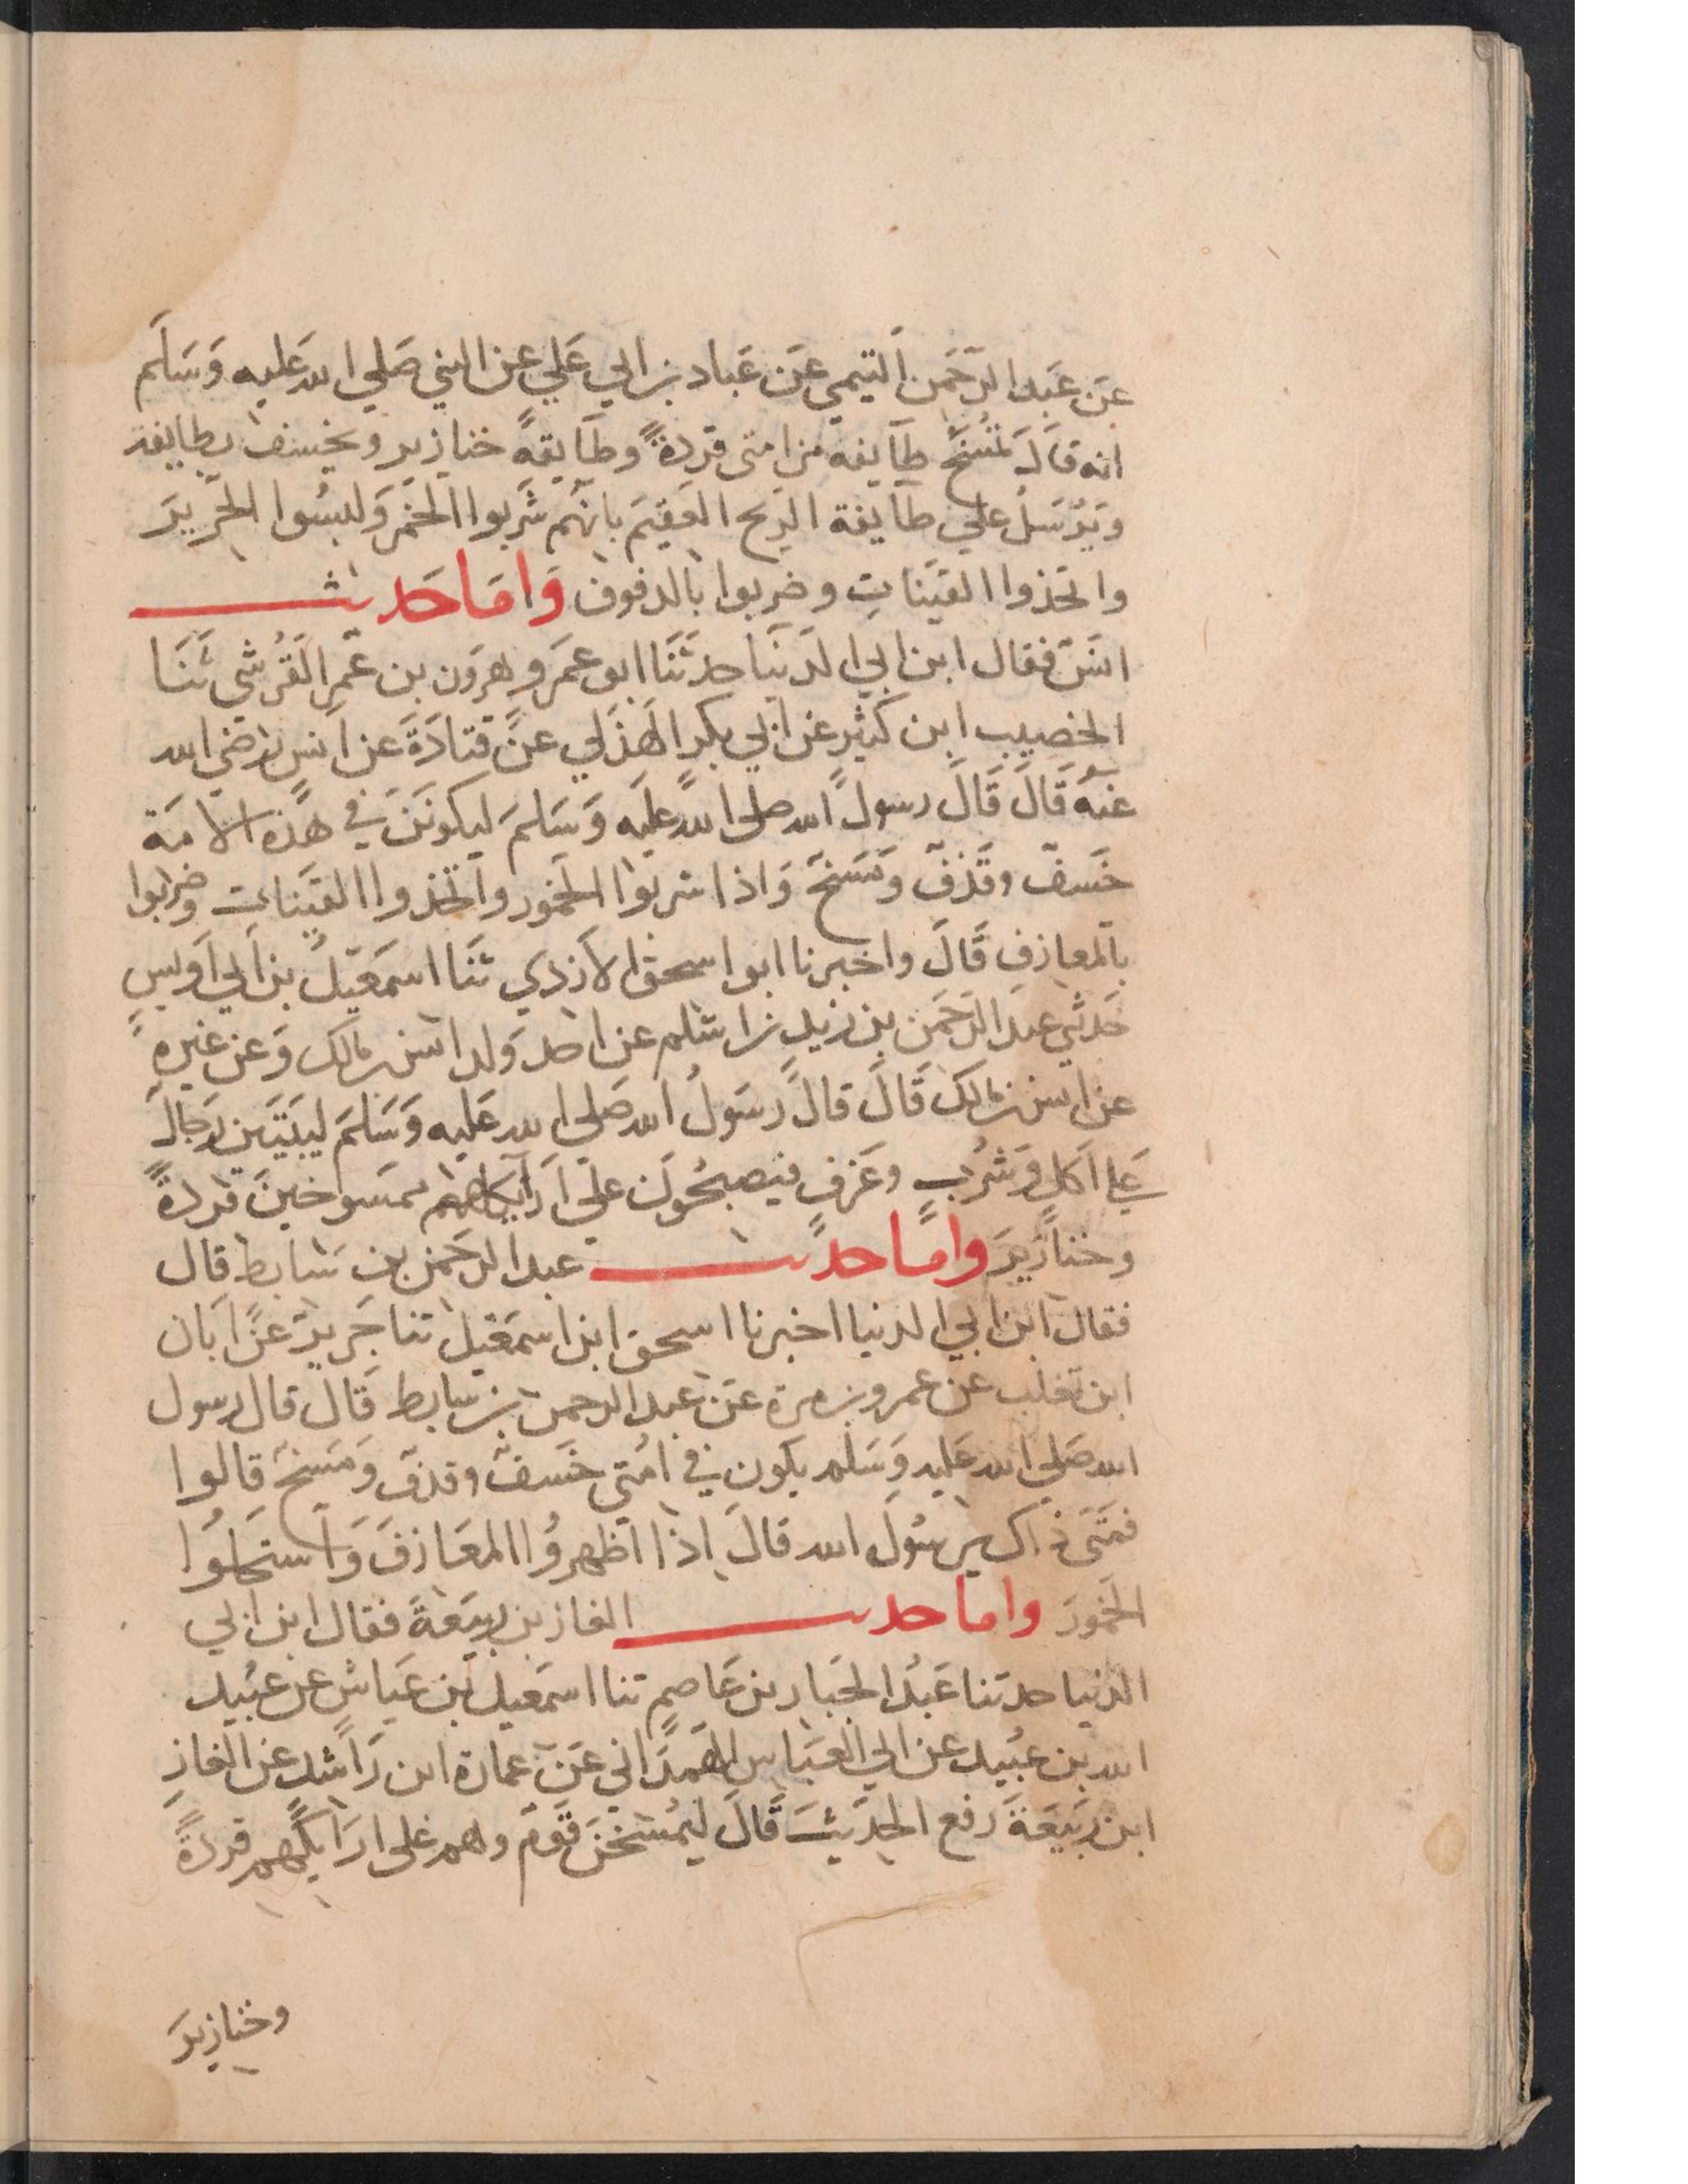 عن عَبد الرحمن التيمي عن عَباد بن ابي عَلي عن النبي صَلي الله عَليه وَسَلم
انه قال تمُسَخُ طآيفه من امتى قردةً وطآيفةً خنازير ويخسف بطايفة
ويرُسَلُ علي طآيفة الريح العقيم بانهم شَربوا الخمر وَلبسُوا الحَرير
واتخذوا القينات وضربوا بالدفوف وَامَا حَديث
انس فقال ابن ابي الدنيا حدثنَا ابو عمَرو هرون بن عُمر القرُشي ثنَا
الخصيب ابن كثير عن ابي بكر الهذلي عن قتادَةَ عن انس رضي الله
عنهُ قَالَ قَالَ رسول الله صلى الله عليه وَسَلمَ ليكونَنَ في هذه الامَة
خَسفٌ وقذفٌ ومَسخٌ وَاذا شربوا الخمور واتخذوا القينات وضربوا
بالمعازفِ قَالَ واخبرنا ابو اسحق الازدي ثنَا اسمَعيل بن ابي اويسِ
حَدثني عبد الرحمَن بن زيد بن اسلم عن احد وَلد انس بن مالك وَعن غيره
عن انس بن مالك قَالَ قالَ رَسَولُ الله صَلي الله عَليه وَسَلمَ ليبَيتَين رجَال
عَلي اَكل وَشرُبٍ وعَزفٍ فيصبحُونَ علَي اَرآيكهم ممسوخين قردةً
وخنازيرَ وامَا حديث عبد الرحَمن بن سَابط قال
فقال ابن ابي الدنيا اخبرنا اسحق ابن اسمَعيل ثنا جَرير عن اَبان
ابن تغلب عن عمرو بن مرة عن عبد الرحمن بن سابط قال قال رسول
الله صَلي الله عَليه وَسَلم يكون في امُتي خَسفٌ وقذفٌ ومَسخٌ قالوا
فمتَى ذاك يرسُولَ الله قالَ اِذا اظهروُا المعَازفَ وَاستحلوُا
الخمورَ واما حديث الغاز بن ربيَعةَ فقال ابن ابي
الدنيا حدثنا عَبدُ الجَبار بن عَاصمٍ ثنا اسمَعيل بن عَياش عن عبُيد
الله بن عبُيد عن ابي العبَاس الهَمدَاني عَن عمارة ابن رَاشد عن الغازِ
ابن ربَيعَةَ رَفع الحَديثَ قَالَ ليمُسَخنَ قَومٌ وهم على ارَايكهم قردةً
وخنازيرَ